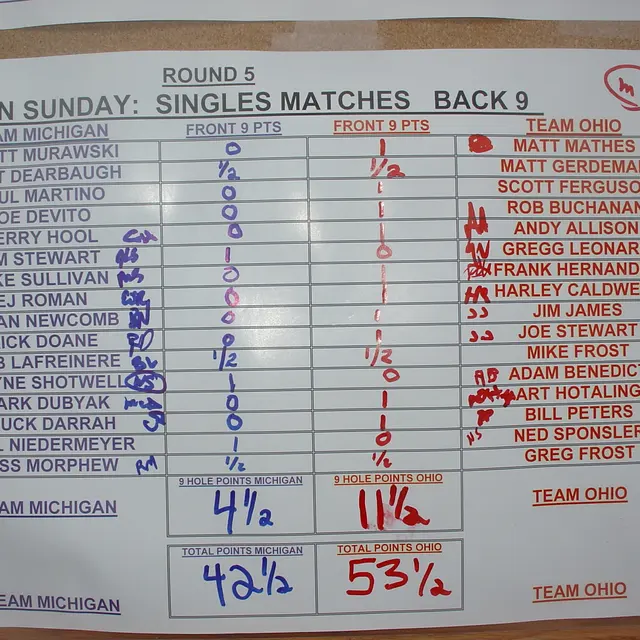 ROUND 5
N SUNDAY: SINGLES MATCHES BACK 9
M
AM MICHIGAN FRONT 9 PTS FRONT 9 PTS TEAM OHIO
TT MURAWSKI 0 1 MATT MATHES
T DEARBAUGH 1/2 1/2 MATT GERDEMA
UL MARTINO 0 1 SCOTT FERGUSO
OE DEVITO 0 1 ROB BUCHANAN
ERRY HOOL 0 1 ANDY ALLISON
M STEWART 1 0 GREGG LEONAR
KE SULLIVAN 0 1 FRANK HERNAND
EJ ROMAN 0 1 HR HARLEY CALDWE
AN NEWCOMB 0 1 JJ JIM JAMES
ICK DOANE RD 0 1 JJ JOE STEWART
B LAFREINERE 1/2 1/2 MIKE FROST
YNE SHOTWELL 1 0 AB ADAM BENEDICT
ARK DUBYAK 0 1 ART HOTALING
UCK DARRAH 0 1 BILL PETERS
L NIEDERMEYER 1 0 NS NED SPONSLER
SS MORPHEW RM 1/2 1/2 GREG FROST
9 HOLE POINTS MICHIGAN 9 HOLE POINTS OHIO
AM MICHIGAN 4 1/2 11 1/2 TEAM OHIO
TOTAL POINTS MICHIGAN TOTAL POINTS OHIO
EAM MICHIGAN 42 1/2 53 1/2 TEAM OHIO